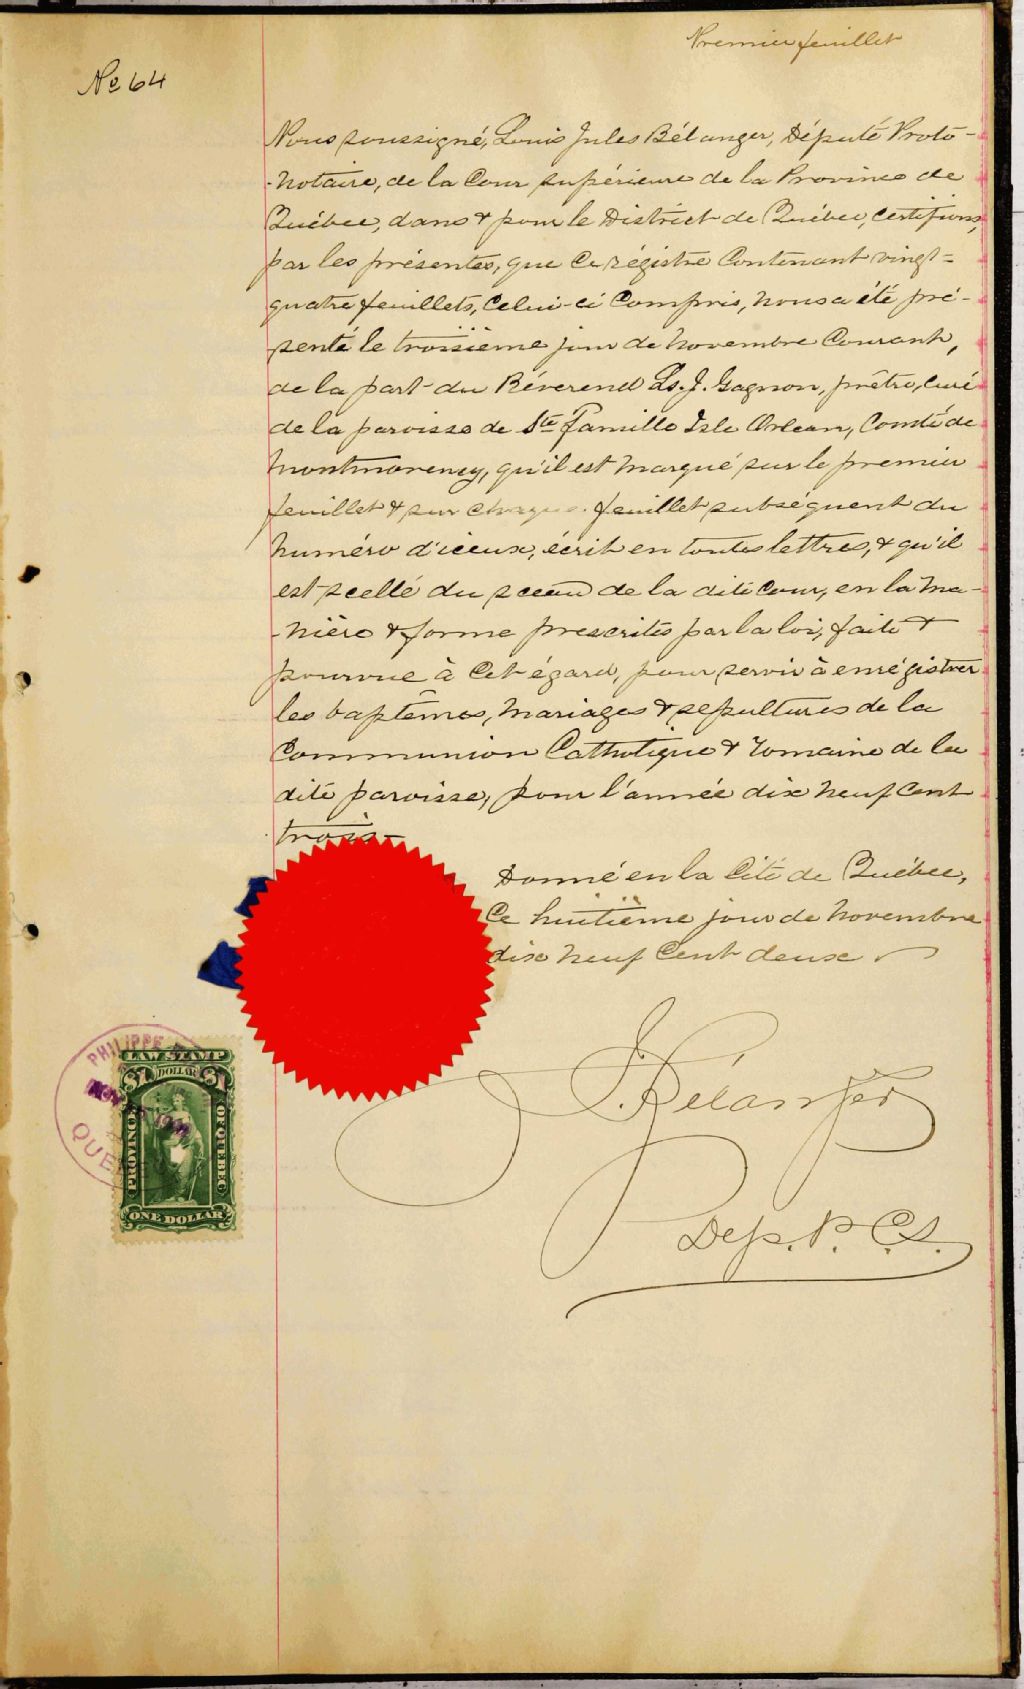 Premier feuillet
No 64
Nous soussigné, Louis Jules Bélanger, Député Proto-
-notaire, de la Cour supérieure de la Province de
Québec, dans & pour le District de Québec, certifions,
par les présentes, que ce régistre contenant vingt-
quatre feuillets, celui-ci compris, nous a été pré-
senté le troisième jour de novembre courant,
de la part du Révérend Ls. J. Gagnon, prêtre, curé
de la paroisse de Ste Famille Isle Orlean, Comté de
Montmorency, qu'il est marqué sur le premier
feuillet & sur chaque feuillet subséquent du
numéro d'iceux, écrit en toutes lettres, & qu'il
est scellé du sceau de la dite Cour, en la ma-
-nière & forme prescrites par la loi, faite &
pourvue à cet égard, pour servir à enrégistrer
les baptêmes, mariages & sépultures de la
Communion Catholique & romaine de la
dite paroisse, pour l'année dix neuf cent
trois
Donné en la Cité de Québec,
ce huitième jour de novembre
dix neuf cent deux
J. Bélanger
Dep. P. C. S.
PHILIPPE
NOV
QUE
LAW STAMP
$1 DOLLAR $1
PROVINCE
OF QUEBEC
ONE DOLLAR